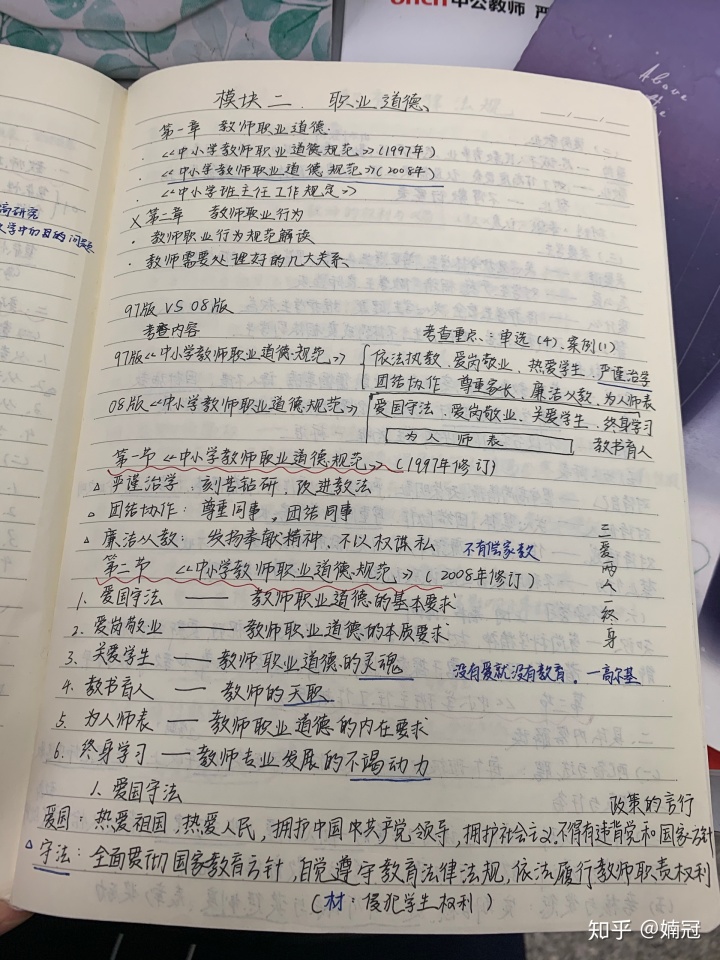 中公教师 严
Above
模块二 . 职业道德、
第一章 教师职业道德.
. 《中小学教师职业道德规范》(1997年)
. 《中小学教师职业道德规范》(2008年)
. 《中小学班主任工作规定》
X 第二章 教师职业行为
. 教师职业行为规范解读
. 教师需要处理好的几大关系、
高研究
97版 VS 08版
考查内容 考查重点、: 单选(4)、案例(1)
97版《中小学教师职业道德规范》 依法执教、爱岗敬业、热爱学生、严谨治学
团结协作 尊重家长、廉洁从教、为人师表
08版《中小学教师职业道德规范》 爱国守法、爱岗敬业、关爱学生、终身学习
为人师表 教书育人
第一节《中小学教师职业道德规范》(1997年修订)
△ 严谨治学、刻苦钻研，改进教法
△ 团结协作: 尊重同事，团结同事
△ 廉洁从教: 发扬奉献精神、不以权谋私 不有偿家教
第二节 《中小学教师职业道德规范》(2008年修订)
三爱两人一终身
1. 爱国守法 —— 教师职业道德的基本要求
2. 爱岗敬业 —— 教师职业道德的本质要求
3. 关爱学生 —— 教师职业道德的灵魂
没有爱就没有教育。—高尔基
4. 教书育人 — 教师的天职
5. 为人师表 — 教师职业道德的内在要求
6. 终身学习 — 教师专业发展的不竭动力
1. 爱国守法
政策的言行
爱国: 热爱祖国，热爱人民，拥护中国共产党领导，拥护社会主义。不得有违背党和国家方针
△ 守法: 全面贯彻国家教育方针，自觉遵守教育法律法规，依法履行教师职责权利
(材: 侵犯学生权利)
知乎 @婻冠